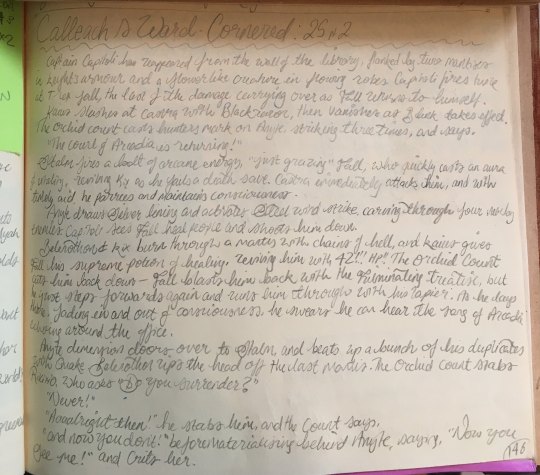 Calleach's Ward - Cornered: 25.12
Captain Capitoli has reappeared from the wall of the library, flanked by two mantises
in knights armour and a flowerlike creature in flowing robes. Capitoli fires twice
at Fall, the last of the damage carrying over as Fall returns to himself.
slashes at Castra with Blackrazor, then vanishes as takes effect.
The Orchid Count casts hunters mark on Anyte, striking three times, and says,
"The Court of Arcadia is returning!"
Stalm fires a bolt of arcane energy, "just grazing" Fall, who quickly casts an aura
of vitality, reviving Kix as he fails a death save. Castra immediately attacks him, and with
timely aid he parries and maintains consciousness.
Anyte draws Silver lening and activates Steel wind strike, carving through four nearby
enemies. Capitoli sees Fall heal people and shoots him down.
Belerothon & Kix burn through a mantis with chains of hell, and gives
Fall his supreme potion of healing, reviving him with 42!! HP!! The Orchid Count
cuts him back down - Fall blasts him back with the Fulminating treatise, but
he just steps forwards again and runs him through with his rapier. As he lays
there, fading in and out of consciousness, he swears he can hear the song of Arcadia
around the office.
Anyte dimension doors over to Stalm and beats up a bunch of his duplicates
with Quake. Belerothon rips the head off the last mantis. The Orchid Count stabs
who asks "Do you surrender?"
"Never!"
"Aaaalright then!" he stabs him, and the Count says,
"and now you don't!" before materialising behind Anyte, saying, "Now you
see me!" and Crits her.
146